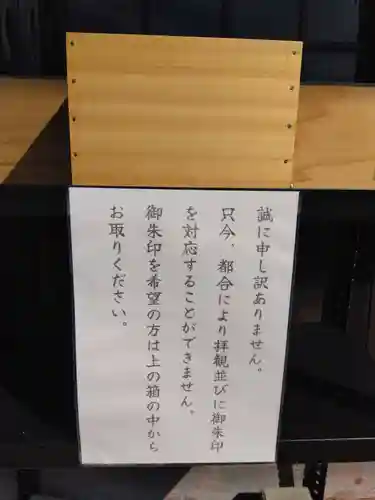 誠に申し訳ありません。
只今、都合により拝観並びに御朱印
を対応することができません。
御朱印を希望の方は上の箱の中から
お取りください。